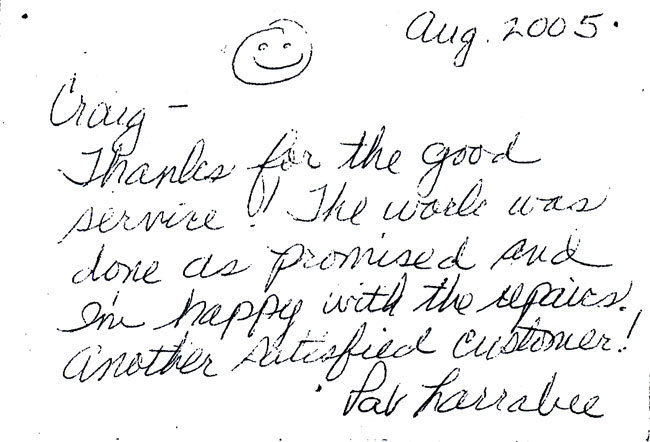 Aug. 2005.
Craig -
Thanks for the good
service! The work was
done as promised and
I'm happy with the repairs.
Another satisfied customer!
Pat Larrabee